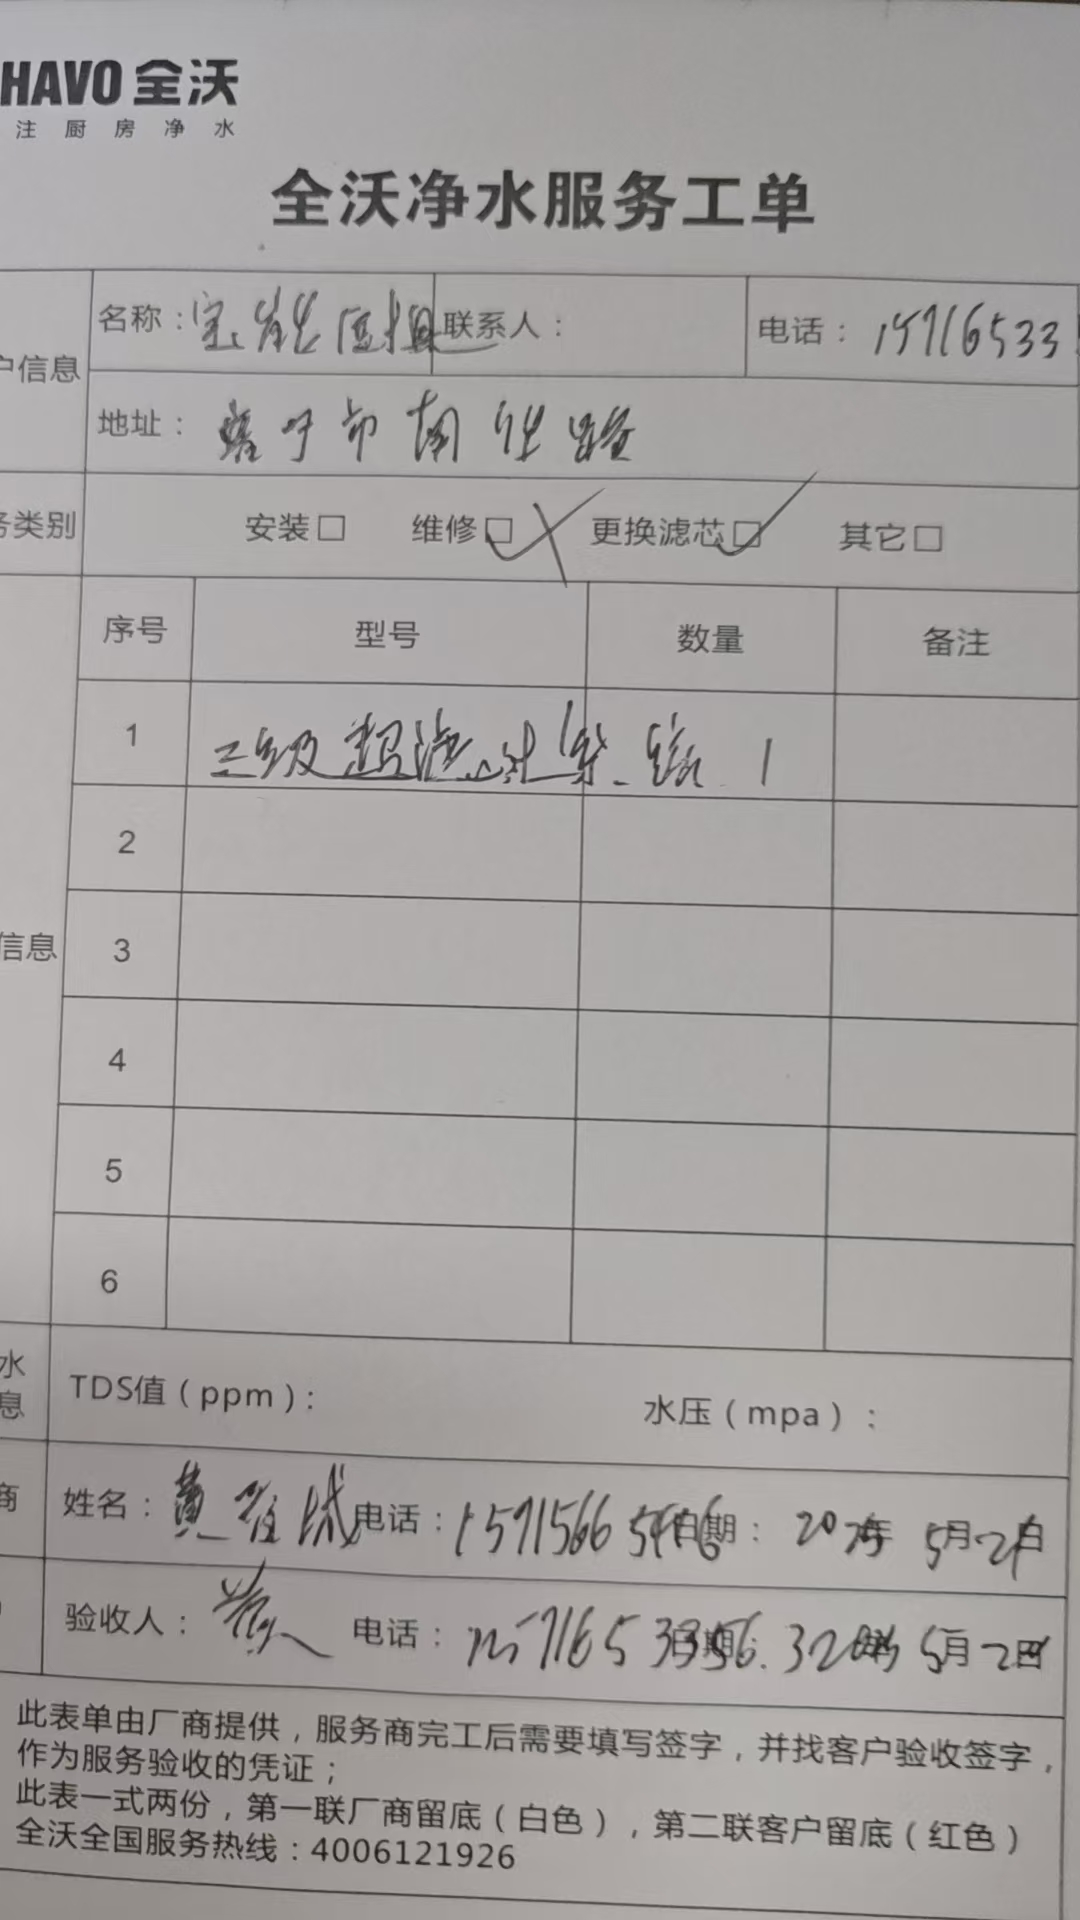 HAVO 全沃
注厨房净水
全沃净水服务工单
户信息
名称：宝能 联系人： 电话：15716533
地址： 市南 路
务类别 安装□ 维修□ 更换滤芯□ 其它□
序号 型号 数量 备注
1 三级超滤 1
2
信息 3
4
5
6
水 息
TDS值（ppm）： 水压（mpa）：
商 姓名：黄 城 电话： 日期： 年 5月 日
验收人： 电话： 日期： 5月 日
此表单由厂商提供，服务商完工后需要填写签字，并找客户验收签字，
作为服务验收的凭证；
此表一式两份，第一联厂商留底（白色），第二联客户留底（红色）
全沃全国服务热线：4006121926